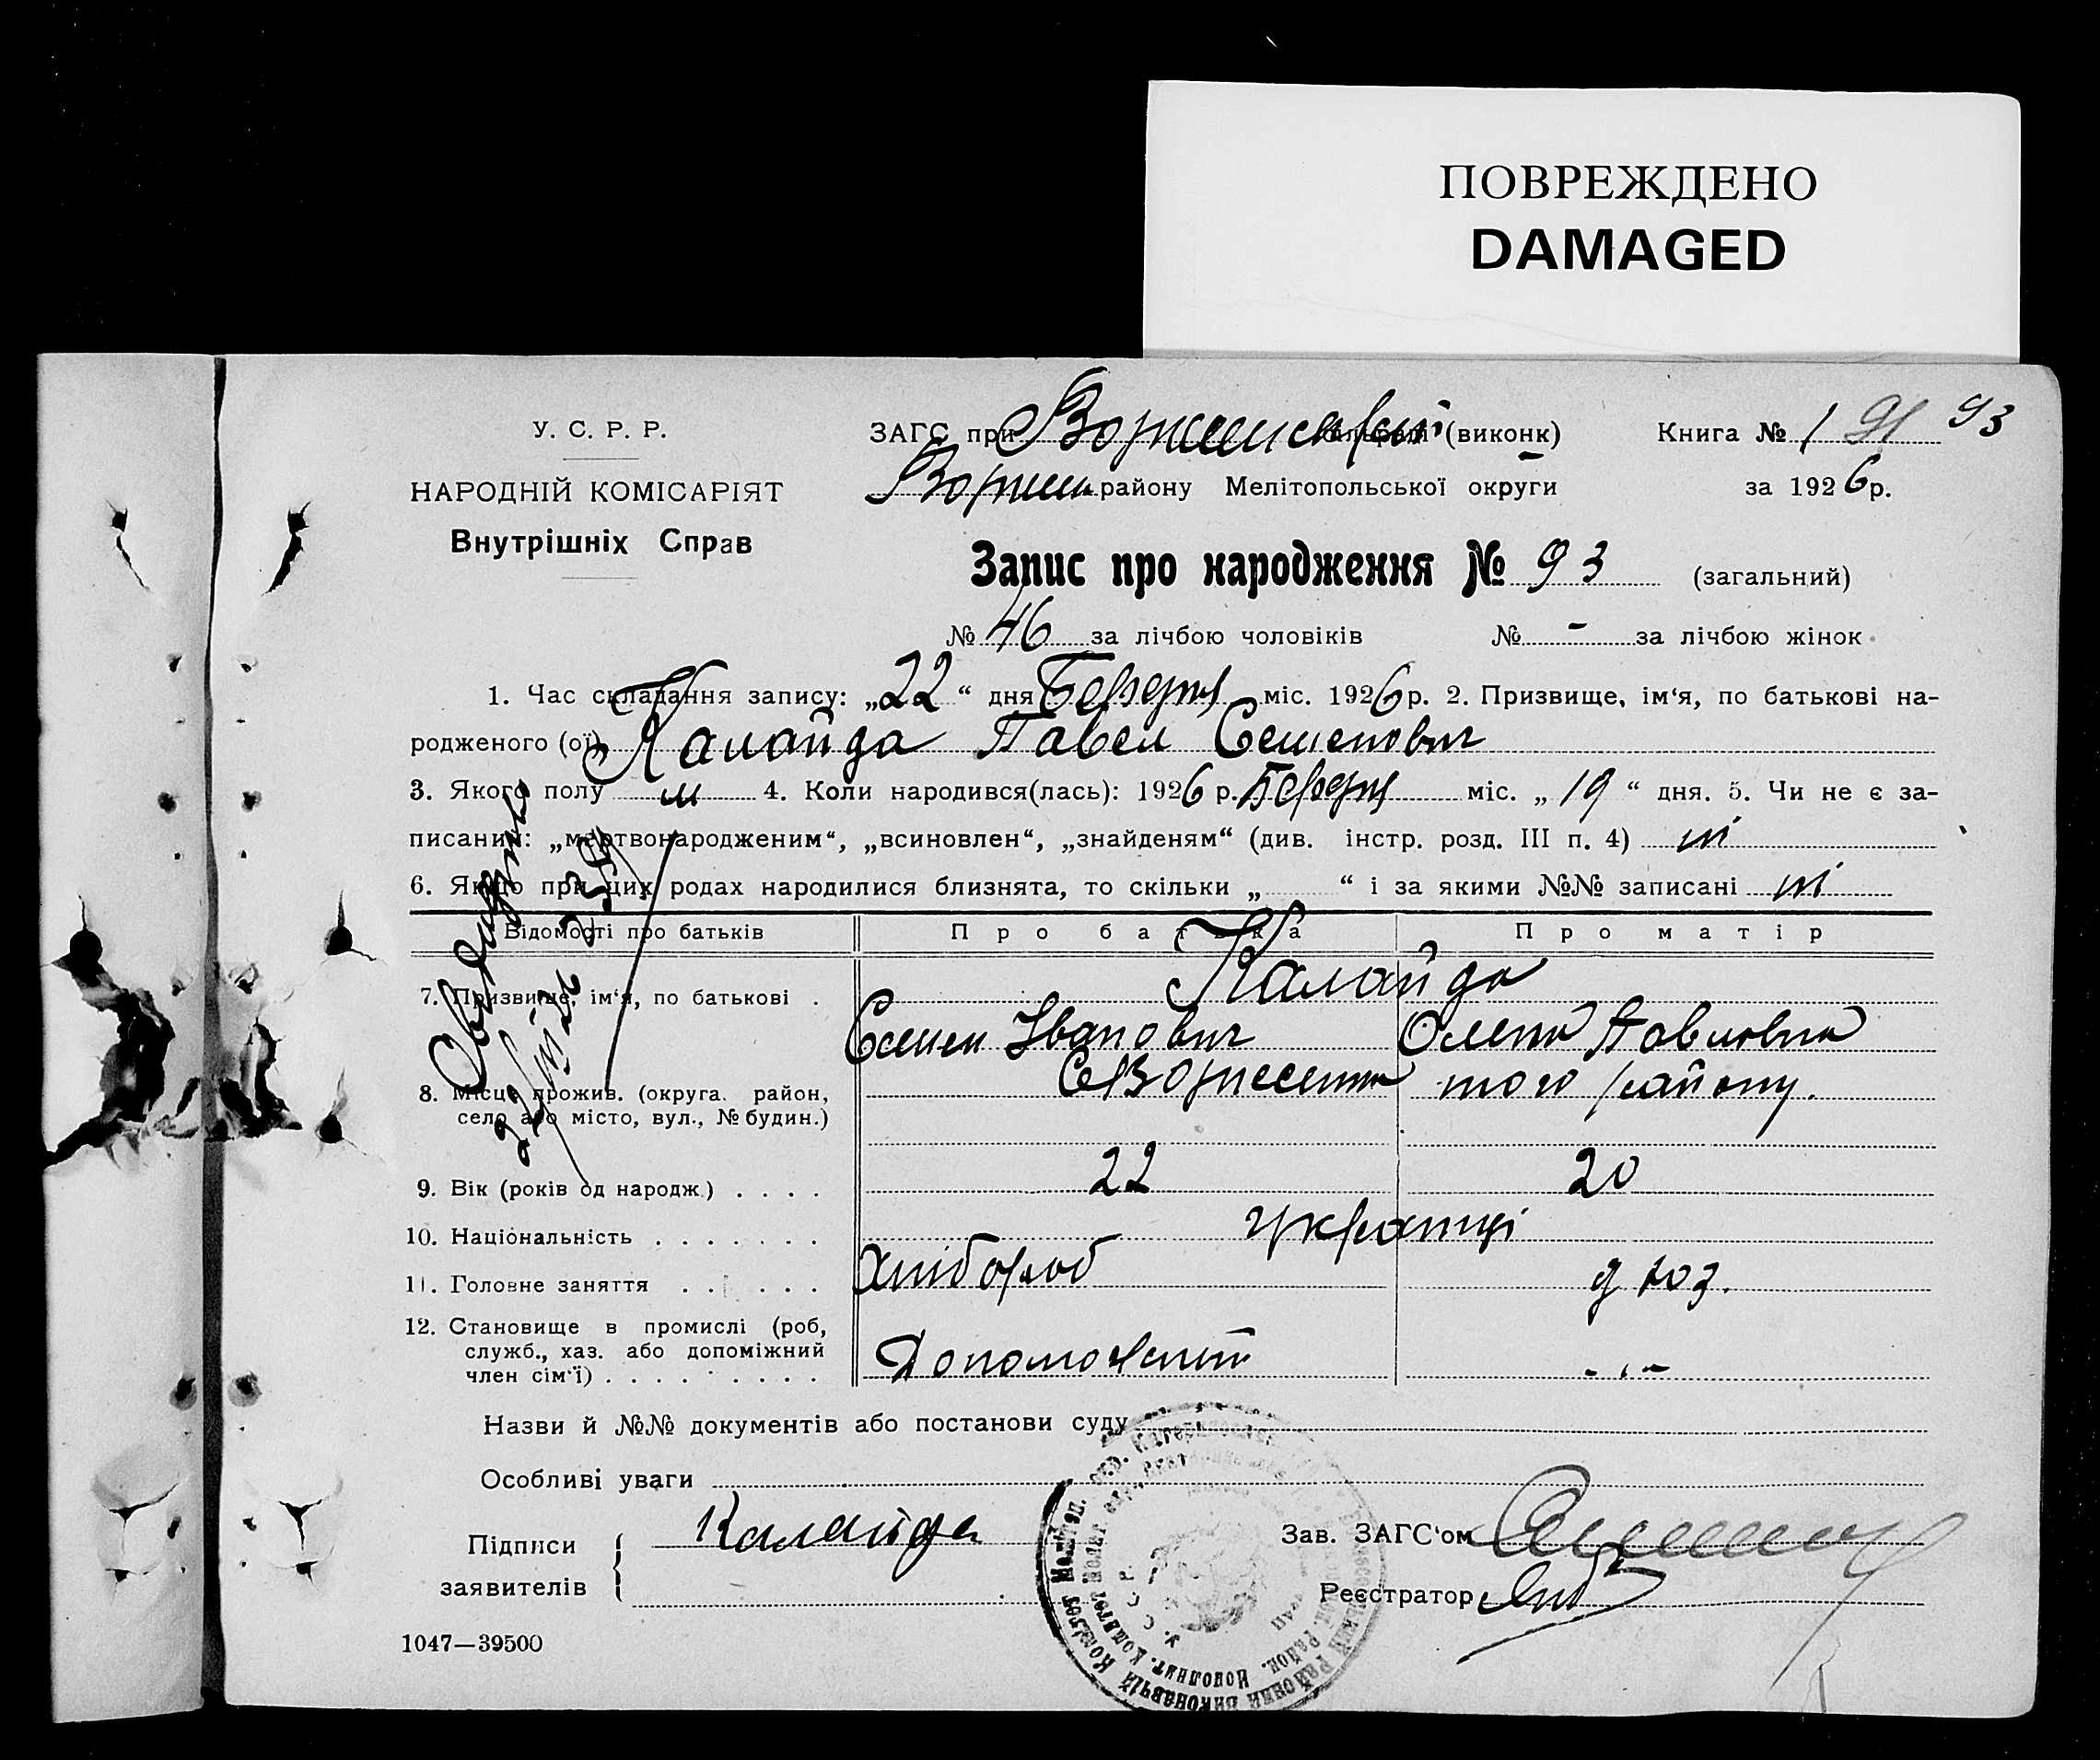 ПОВРЕЖДЕНО
DAMAGED
У. С. Р. Р.
НАРОДНІЙ КОМІСАРІЯТ
Внутрішніх Справ
ЗАГС при (виконк)
району Мелітопольської округи
Книга № 1 91 93
за 1926 р.
Запис про народження № 93 (загальний)
№ 46 за лічбою чоловіків № - за лічбою жінок
1. Час складання запису: „22“ дня Березня міс. 1926 р. 2. Призвище, ім‘я, по батькові на-
родженого (ої) Калайда Павел Семенович
3. Якого полу м 4. Коли народився(лась): 1926 р. Березня міс. „19“ дня. 5. Чи не є за-
писаним: „мертвонародженим“, „всиновлен“, „знайденям“ (див. інстр. розд. III п. 4) ні
6. Якщо при цих родах народилися близнята, то скільки „ “ і за якими №№ записані ні
Відомості про батьків Про батька Про матір
7. Призвище, ім‘я, по батькові . Калайда
Семен Іванович Олена Павловна
8. Місце прожив. (округа. район,
село або місто, вул., № будин.)
того району.
9. Вік (років од народж.) . . . . 22 20
10. Національність . . . . . . . українці
11. Головне заняття . . . . . . Хлібороб д хоз.
12. Становище в промислі (роб,
служб., хаз. або допоміжний
член сім‘ї) . . . . . . . . . -„-
Назви й №№ документів або постанови суду
Особливі уваги
Підписи
заявителів
Калайда
Зав. ЗАГС‘ом
Реєстратор
1047—39500